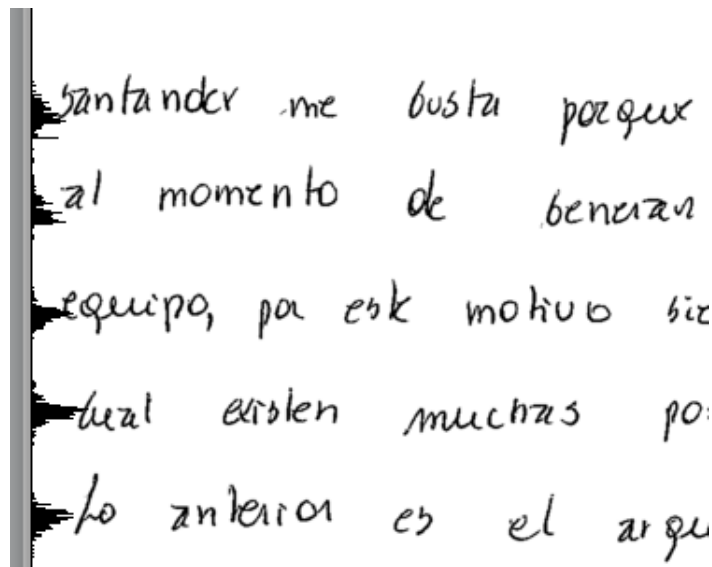 santander me gusta porque
al momento de generar
equipo, por este motivo sie
cual existen muchas po
Lo anterior es el argu